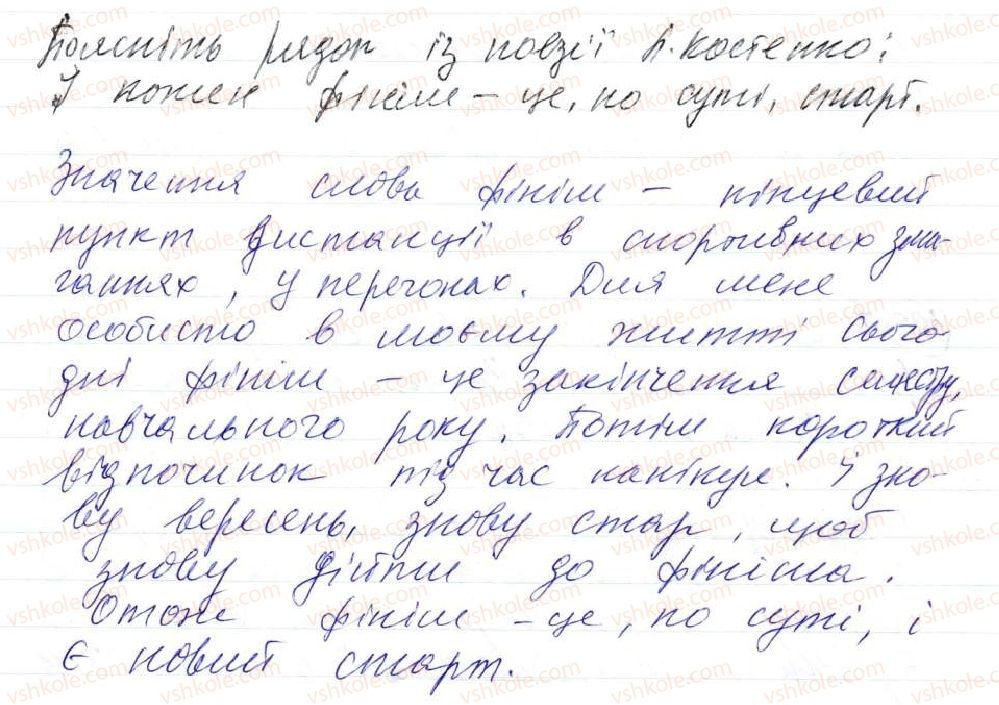 Поясніть рядок із поезії Л. Костенко:
І кожен фініш – це, по суті, старт.
Значення слова фініш – кінцевий
пункт дистанції в спортивних зма-
ганнях, у перегонах. Для мене
особисто в моєму житті сього-
дні фініш – це закінчення семестру,
навчального року. Потім короткий
відпочинок під час канікул. І зно-
ву вересень, знову стар, щоб
знову дійти до фініша.
Отже фініш – це, по суті, і
є новий старт.